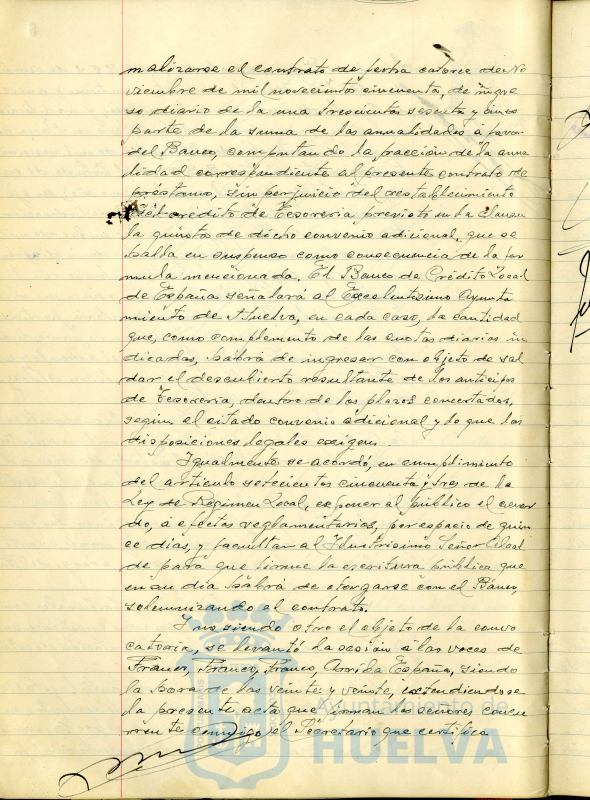 malizarse el contrato de fecha catorce de No
viembre de mil novecientos cincuenta, de ingre
so diario de la una trescientos sesenta y cinco
parte de la suma de las anualidades a favor
del Banco, computando la fracción de la anua
lidad correspondiente al presente contrato de
préstamo, sin perjuicio del restablecimiento
del crédito de Tesorería previsto en la Clausu
la quinta de dicho convenio adicional, que se
halla en suspenso como consecuencia de la fór
mula mencionada. El Banco de Crédito Local
de España señalará al Excelentísimo Ayunta
miento de Huelva, en cada caso, la cantidad
que, como complemento de las cuotas diarias in
dicadas, habrá de ingresar con objeto de sal
dar el descubierto resultante de los anticipos
de Tesorería, dentro de los plazos concertados,
según el citado convenio adicional y lo que las
disposiciones legales exigen.
Igualmente se acordó, en cumplimiento
del artículo setecientos cincuenta y tres de la
Ley de Régimen Local, exponer al público el acuer
do, a efectos reglamentarios, por espacio de quin
ce días, y facultar al Ilustrísimo Señor Alcal
de para que firme la escritura pública que
en su día habrá de otorgarse con el Banco,
solemnizando el contrato.
Y no siendo otro el objeto de la convo
catoria, se levantó la sesión a las voces de
Franco, Franco, Franco, Arriba España, siendo
la hora de las veinte y veinte, extendiéndose
la presente acta que firman los señores concu
rrente conmigo el Secretario que certifico
Ayuntamiento de
HUELVA